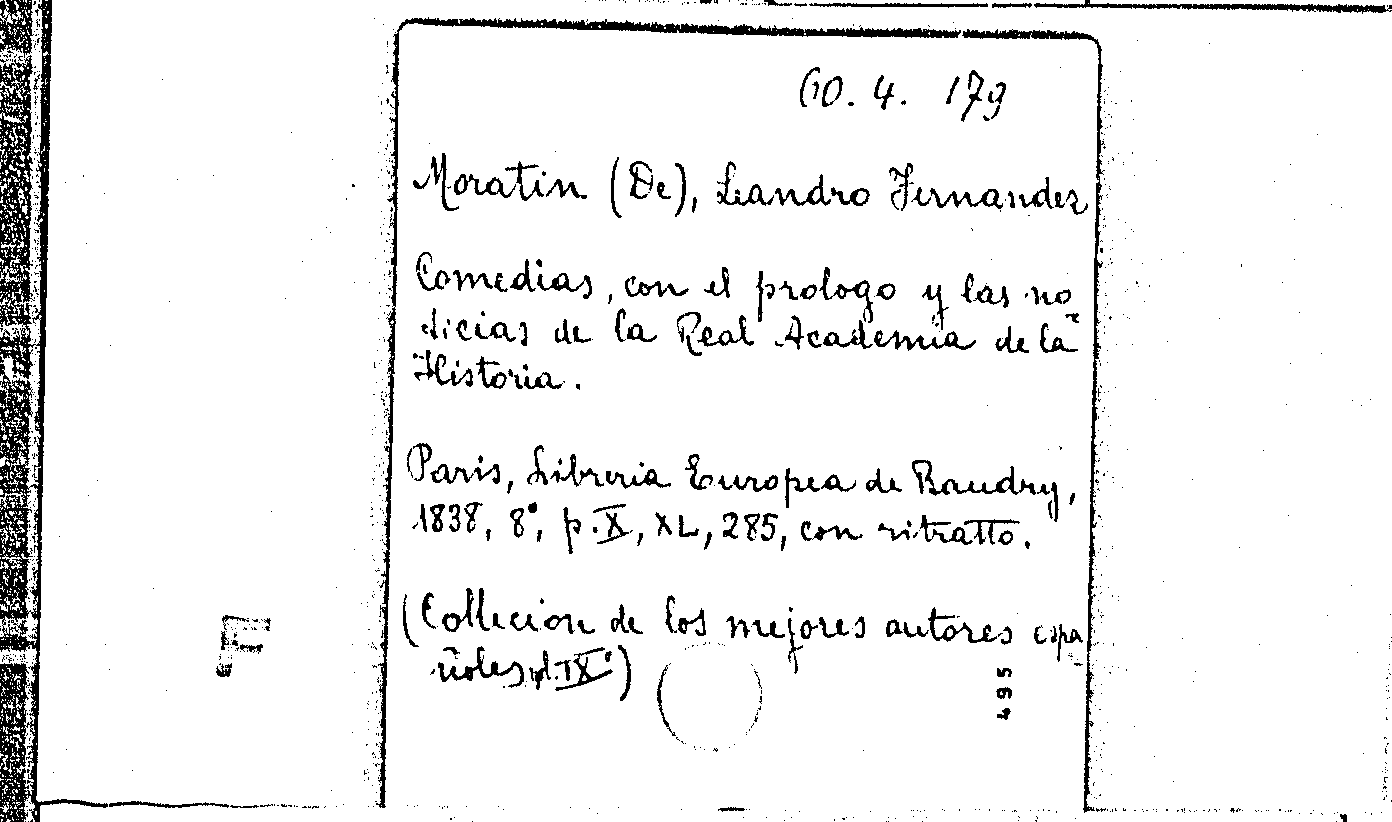 60. 4. 179
Moratin (De), Leandro Fernandez
Comedias, con el prologo y las no-
ticias de la Real Academia de la
Historia.
Paris, Libreria Europea de Baudry,
1838, 8°, p. X, XL, 285, con ritratto.
(Collecion de los mejores autores espa-
ñoles, vol. IX°)
F
495